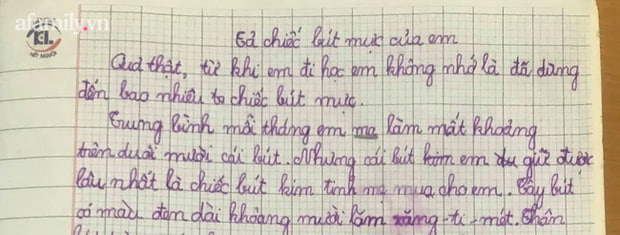 afamily.vn
KL
Tả chiếc bút mực của em
Quả thật, từ khi em đi học em không nhớ là đã dùng
đến bao nhiêu to chiếc bút mực.
Trung bình mỗi tháng em ma làm mất khoảng
trên dưới mười cái bút. Nhưng cái bút kim em du giữ được
lâu nhất là chiếc bút kim tinh mẹ mua cho em. Cây bút
có màu đen dài khoảng mười lăm răng-ti-mét. Thân